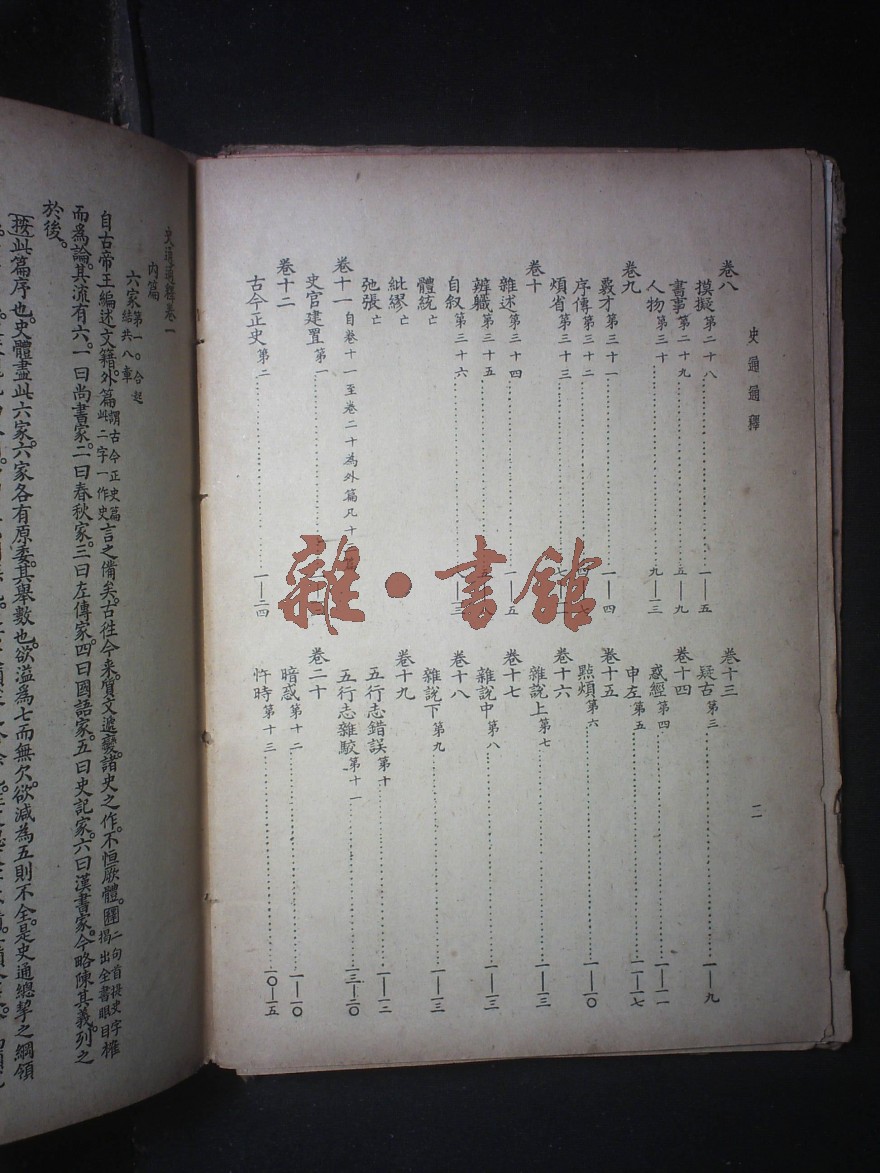 史通通釋
二
卷八
摸擬第二十八 一—五
書事第二十九 五—九
人物第三十 九—一三
卷九
覈才第三十一 一—四
序傳第三十二
煩省第三十三
卷十
雜述第三十四 一—五
辨職第三十五
自叙第三十六
體統亡
紕繆亡
弛張亡
卷十一自卷十一至卷二十為外篇凡十
史官建置第一
卷十二
古今正史第二 一—二四
卷十三
疑古第三 一—九
卷十四
惑經第四 一—一一
申左第五 一一—一七
卷十五
點煩第六 一—一〇
卷十六
雜說上第七 一—一三
卷十七
雜說中第八 一—一三
卷十八
雜說下第九 一—一三
卷十九
五行志錯誤第十 一—一三
五行志雜駁第十一 一三—二〇
卷二十
暗惑第十二 一—一〇
忤時第十三 一〇—一五
雜·書館
史通通釋卷一
內篇
六家第一。合起結共八章
自古帝王編述文籍。外篇謂古今正史篇此二字一作史言之備矣。古往今來。質文遞變。諸史之作。不恒厥體。圈二句首提史字揭出全書眼目榷
而為論。其流有六。一曰尚書家。二曰春秋家。三曰左傳家。四曰國語家。五曰史記家。六曰漢書家。今略陳其義。列之
於後。
按此篇序也。史體盡此六家。六家各有原委。其舉數也。欲溢為七而無欠。欲減為五則不全。是史通總挈之綱領